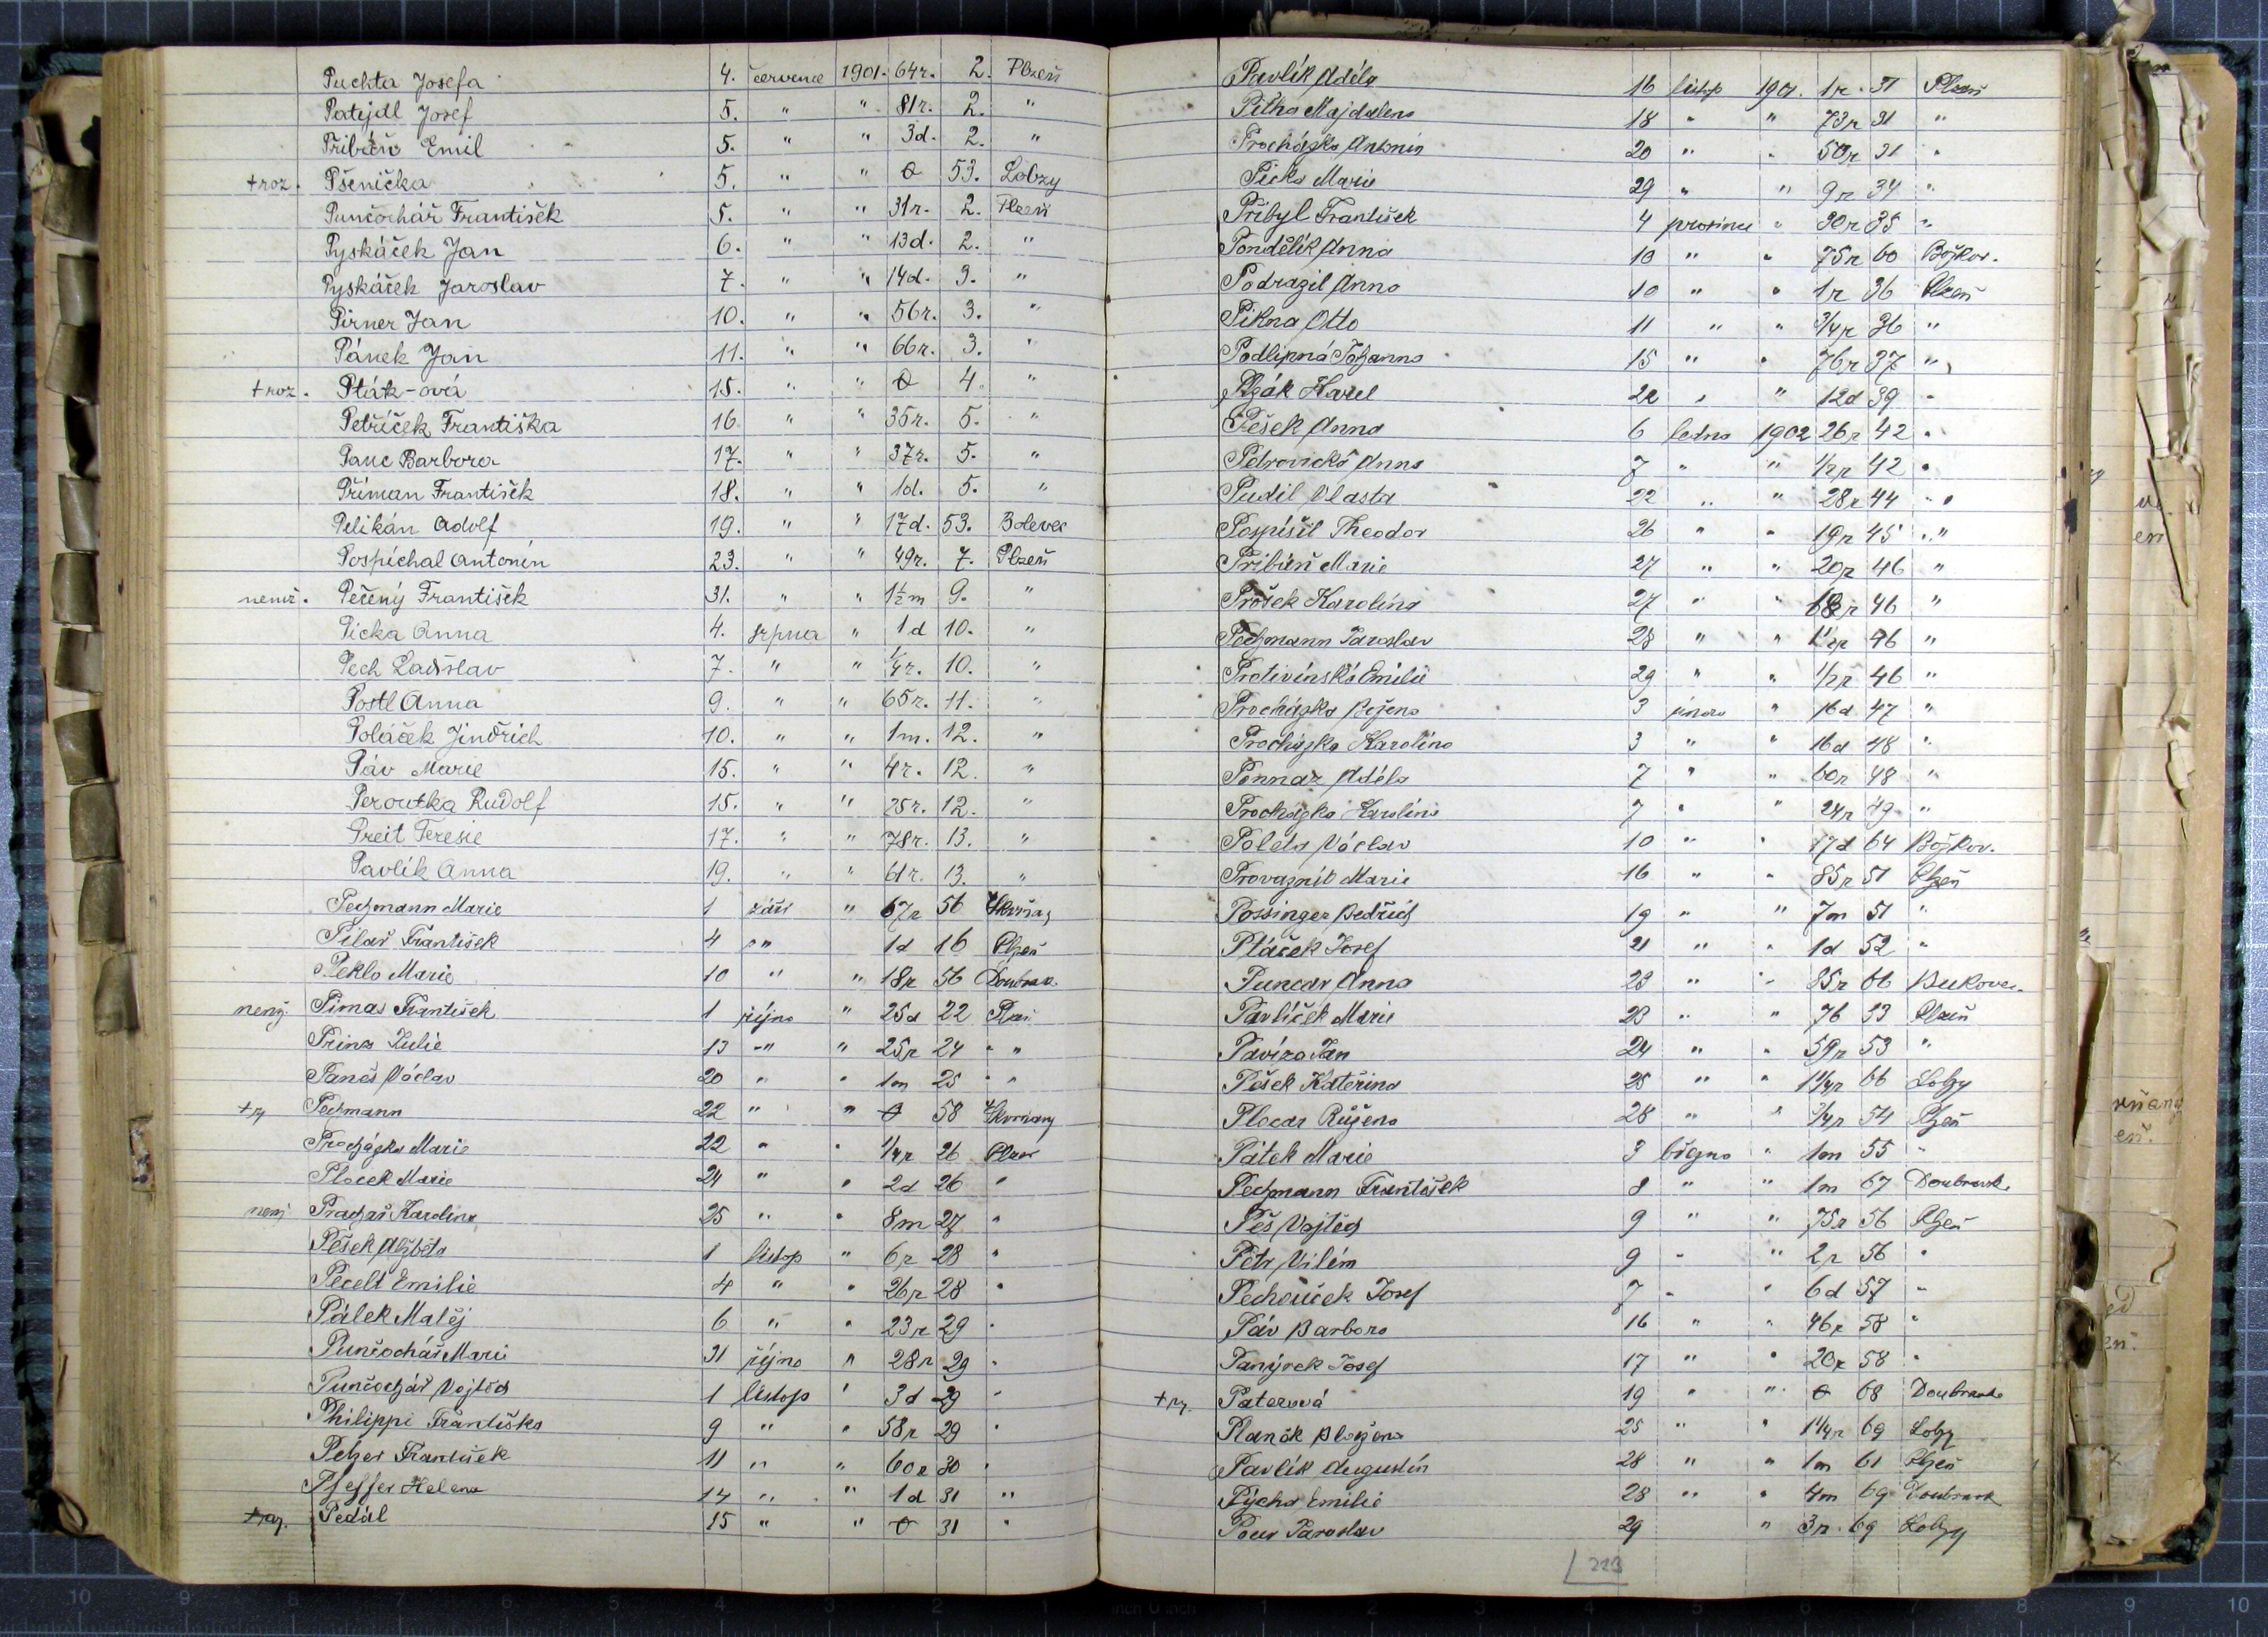 Puchta Josefa 4. července 1901. 64r. 2. Plzeň
Patejdl Josef 5. " " 81r. 2. "
Přibáň Emil 5. " " 3d. 2. "
+roz. Pšenička 5. " " 0 53. Lobzy
Punčochář František 5. " " 31r. 2. Plzeň
Pyskáček Jan 6. " " 13d. 2. "
Pyskáček Jaroslav 7. " " 14d. 3. "
Pirner Jan 10. " " 56r. 3. "
Pánek Jan 11. " " 66r. 3. "
+roz. Pták-ová 15. " " 0 4. "
Petříček Františka 16. " " 35r. 5. "
Panc Barbora 17. " " 37r. 5. "
Příman František 18. " " 1d. 5. "
Pelikán Adolf 19. " " 17d. 53. Bolevec
Pospíchal Antonín 23. " " 49r. 7. Plzeň
nemž. Pečený František 31. " " 1½m 9. "
Picka Anna 4. srpna " 1d 10. "
Pech Ladislav 7. " " ¼r. 10. "
Postl Anna 9. " " 65r. 11. "
Poláček Jindřich 10. " " 1m. 12. "
Páv Marie 15. " " 4r. 12. "
Peroutka Rudolf 15. " " 25r. 12. "
Preit Teresie 17. " " 78r. 13. "
Pavlík Anna 19. " " 61r. 13. "
Pechmann Marie 1 září " 67r 56 Skvrňany
Pilař František 4 " " 1d 16 Plzeň
Peklo Marie 10 " " 18r 56 Doubrav.
nenž. Pimas František 1 října " 25d 22 Plzeň
Prinz Julie 13 " " 25r 24 " "
Paneš Václav 20 " " 1m 25 " "
+rz Pechmann 22 " " 0 58 Skvrňany
Procházka Marie 22 " " ¼r 26 Plzeň
Placek Marie 24 " " 2d 26 "
nenž Prachař Karolina 25 " " 8m 27 "
Pešek Alžběta 1 listop " 6r 28 "
Pecelt Emilie 4 " " 26r 28 "
Pálek Matěj 6 " " 23r 29 "
Punčochář Marie 31 října " 28r 29 "
Punčochář Vojtěch 1 listop " 3d 29 "
Philippi Františka 9 " " 58r 29 "
Pelzer František 11 " " 60r 30 "
Pfeffer Helena 14 " " 1d 31 "
+roz. Pedál 15 " " 0 31 "
Pavlík Adéla 16 listop 1901. 1r. 31 Plzeň
Pitha Majdalena 18 " " 73r 31 "
Procházka Antonín 20 " " 50r 31 "
Picka Marie 29 " " 9r 34 "
Přibyl František 4 prosince " 30r 35 "
Pondělík Anna 10 " " 75r 60 Božkov.
Podrazil Anna 10 " " 1r 36 Plzeň
Pikna Otto 11 " " ¾r 36 "
Podlipná Johanna 15 " " 76r 37 "
Plzák Karel 22 " " 12d 39 "
Pešek Anna 6 ledna 1902 26r 42 "
Petrovická Anna 7 " " ½r 42 "
Pudil Vlasta 22 " " 28r 44 "
Pospíšil Theodor 26 " " 19r 45 "
Přibáň Marie 27 " " 20r 46 "
Prošek Karolina 27 " " 68r 46 "
Pechmann Jaroslav 28 " " 1½r 46 "
Protivínská Emilie 29 " " ½r 46 "
Procházka Božena 3 února " 16d 47 "
Procházka Karolina 3 " " 16d 48 "
Pennaz Adéla 7 " " 60r 48 "
Procházka Karolina 7 " " 24r 49 "
Poleta Václav 10 " " 17d 64 Božkov.
Provazník Marie 16 " " 85r 51 Plzeň
Possinger Bedřich 19 " " 7m 51 "
Ptáček Josef 21 " " 1d 52 "
Puncar Anna 23 " " 85r 66 Bukovec
Pavlíček Marie 23 " " 76 53 Plzeň
Pavíza Jan 24 " " 59r 53 "
Pešek Kateřina 25 " " 1¼r 66 Lobzy
Plocar Růžena 28 " " ¾r 54 Plzeň
Pátek Marie 3 března " 1m 55 "
Pechmann František 8 " " 1m 67 Doubravk.
Peš Vojtěch 9 " " 75r 56 Plzeň
Petr Vilém 9 " " 2r 56 "
Pechouček Josef 7 " " 6d 57 "
Páv Barbora 16 " " 46r 58 "
Panýrek Josef 17 " " 20r 58 "
+rz. Paterová 19 " " 0 68 Doubravka
Planák Blažena 25 " " 1¼r 69 Lobzy
Pavlík Augustin 28 " " 1m 61 Plzeň
Pýcha Emilie 28 " " 4m 69 Doubravk
Pour Jaroslav 29 " 3r. 69 Lobzy
223